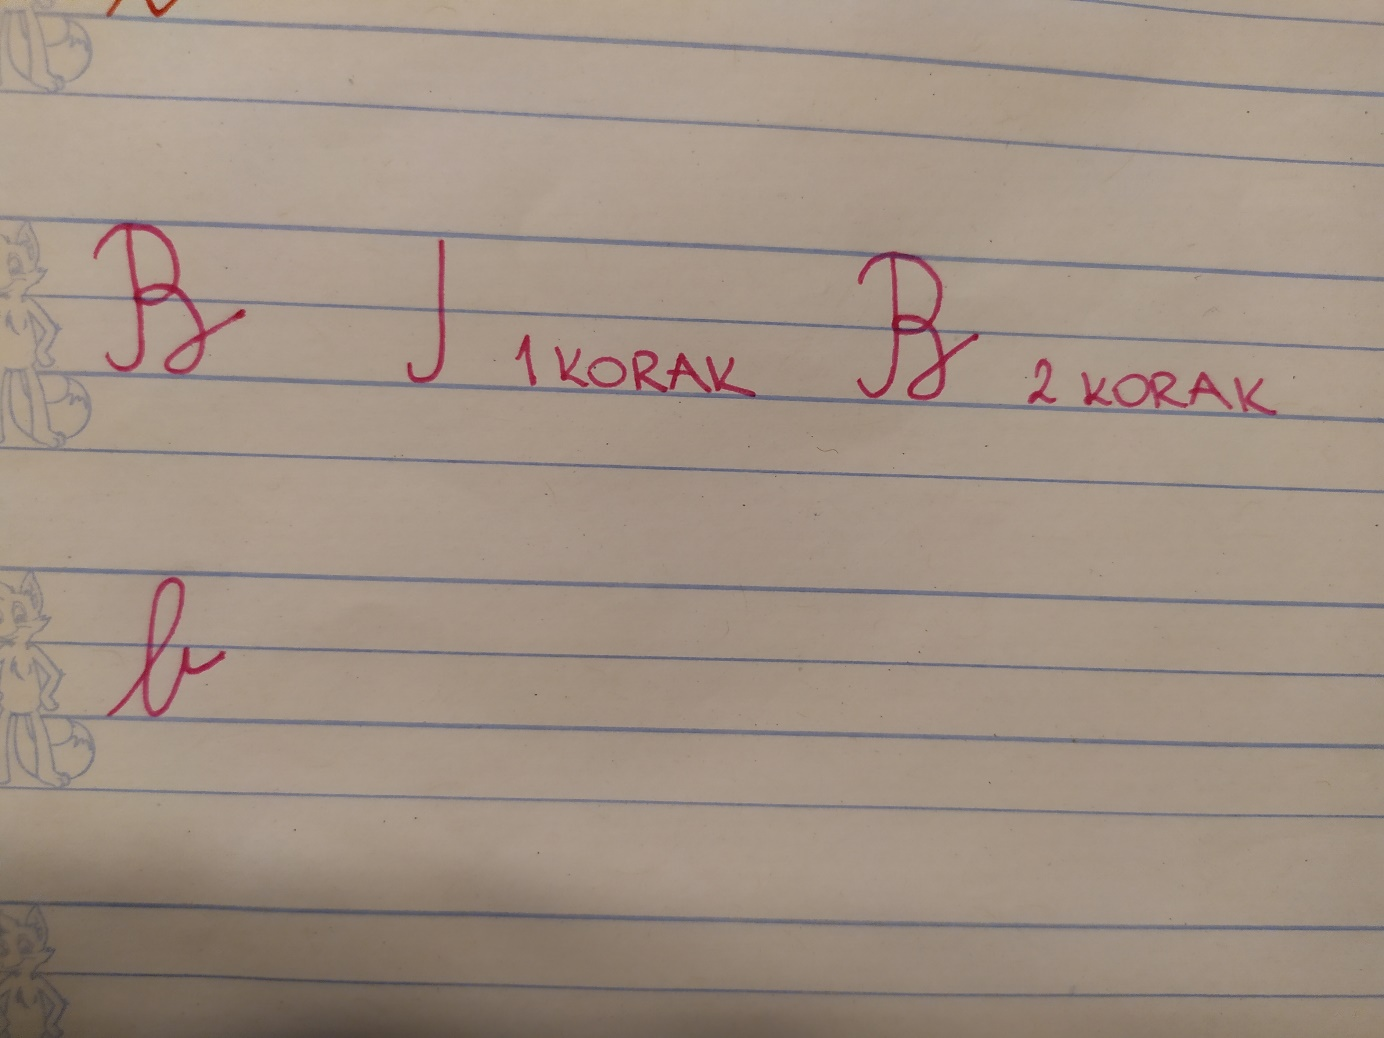 B J 1 KORAK B 2 KORAK
b